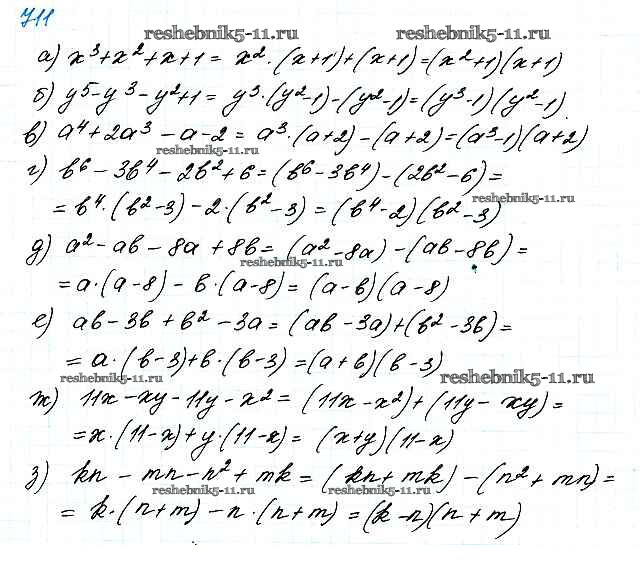 711
reshebnik5-11.ru
а) x³+x²+x+1= x²·(x+1)+(x+1)=(x²+1)(x+1)
б) y⁵-y³-y²+1= y³·(y²-1)-(y²-1)=(y³-1)(y²-1)
в) a⁴+2a³-a-2= a³·(a+2)-(a+2)=(a³-1)(a+2)
reshebnik5-11.ru
г) b⁶-3b⁴-2b²+6=(b⁶-3b⁴)-(2b²-6)=
reshebnik5-11.ru
= b⁴·(b²-3)-2·(b²-3)=(b⁴-2)(b²-3)
д) a²-ab-8a+8b=(a²-8a)-(ab-8b)=
reshebnik5-11.ru
=a·(a-8)-b·(a-8)=(a-b)(a-8)
е) ab-3b+b²-3a=(ab-3a)+(b²-3b)=
=a·(b-3)+b·(b-3)=(a+b)(b-3)
reshebnik5-11.ru
reshebnik5-11.ru
ж) 11x-xy-11y-x²=(11x-x²)+(11y-xy)=
=x·(11-x)+y·(11-x)=(x+y)(11-x)
з) kn-mn-n²+mk=(kn+mk)-(n²+mn)=
reshebnik5-11.ru
reshebnik5-11.ru
= k·(n+m)-n·(n+m)=(k-n)(n+m)